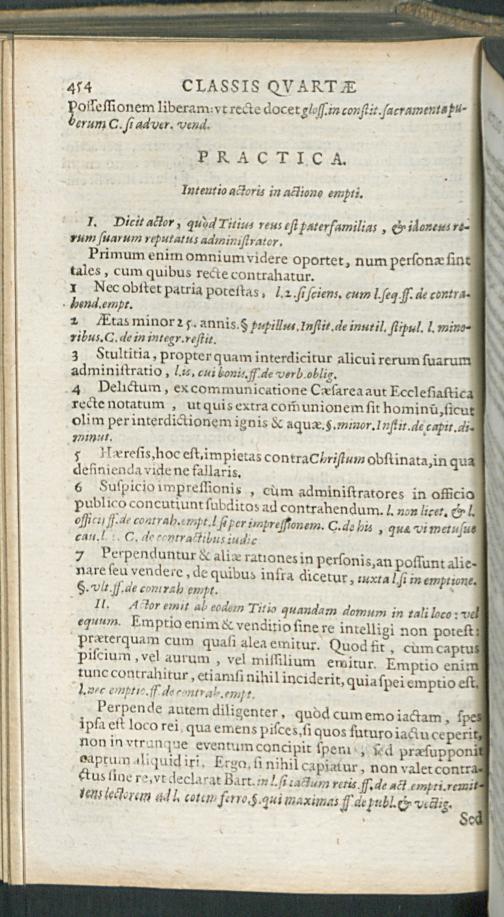 454 CLASSIS QVARTÆ
possessionem liberam: vt recte docet gloss. in constit. sacramenta pu-
berum C. si adver. vend.
PRACTICA.
Intentio actoris in actione empti.
I. Dicit actor, quòd Titius reus est paterfamilias, & idoneus re-
rum suarum reputatus administrator.
Primum enim omnium videre oportet, num personæ sint
tales, cum quibus recte contrahatur.
1 Nec obstet patria potestas, l. 2. si sciens. cum l. seq. ff. de contra-
hend. empt.
2 Ætas minor 25. annis. § pupillus. Instit. de inutil. stipul. l. mino-
ribus. C. de in integr. restit.
3 Stultitia, propter quam interdicitur alicui rerum suarum
administratio, l. is, cui bonis. ff. de verb. oblig.
4 Delictum, ex communicatione Cæsarea aut Ecclesiastica
recte notatum, ut quis extra com̃unionem sit hominũ, sicut
olim per interdictionem ignis & aquæ. §. minor. Instit. de capit. di-
minut.
5 Hæresis, hoc est, impietas contra Christum obstinata, in qua
definienda vide ne fallaris.
6 Suspicio impressionis, cùm administratores in officio
publico concutiunt subditos ad contrahendum. l. non licet. & l.
officij ff. de contrah. empt. l. si per impressionem. C. de his, quæ vi metusue
cau. l. C. de contractibus iudic
7 Perpenduntur & aliæ rationes in personis, an possunt alie-
nare seu vendere, de quibus infra dicetur, iuxta l. si in emptione.
§. vlt. ff. de contrah empt.
II. Actor emit ab eodem Titio quandam domum in tali loco: vel
equum. Emptio enim & venditio sine re intelligi non potest:
præterquam cum quasi alea emitur. Quod fit, cùm captus
piscium, vel aurum, vel missilium emitur. Emptio enim
tunc contrahitur, etiamsi nihil inciderit, quia spei emptio est.
l. nec emptio. ff. de contrah. empt.
Perpende autem diligenter, quòd cum emo iactam, spes
ipsa est loco rei, qua emens pisces, si quos futuro iactu ceperit,
non in vtrunque eventum concipit spem, sed præsupponit
captum aliquid iri. Ergo, si nihil capiatur, non valet contra-
ctus sine re, vt declarat Bart. in l. si iactum retis. ff. de act. empti. remit-
tens lectorem ad l. cotem ferro. §. qui maximas ff. de publ. & vectig.
Sed